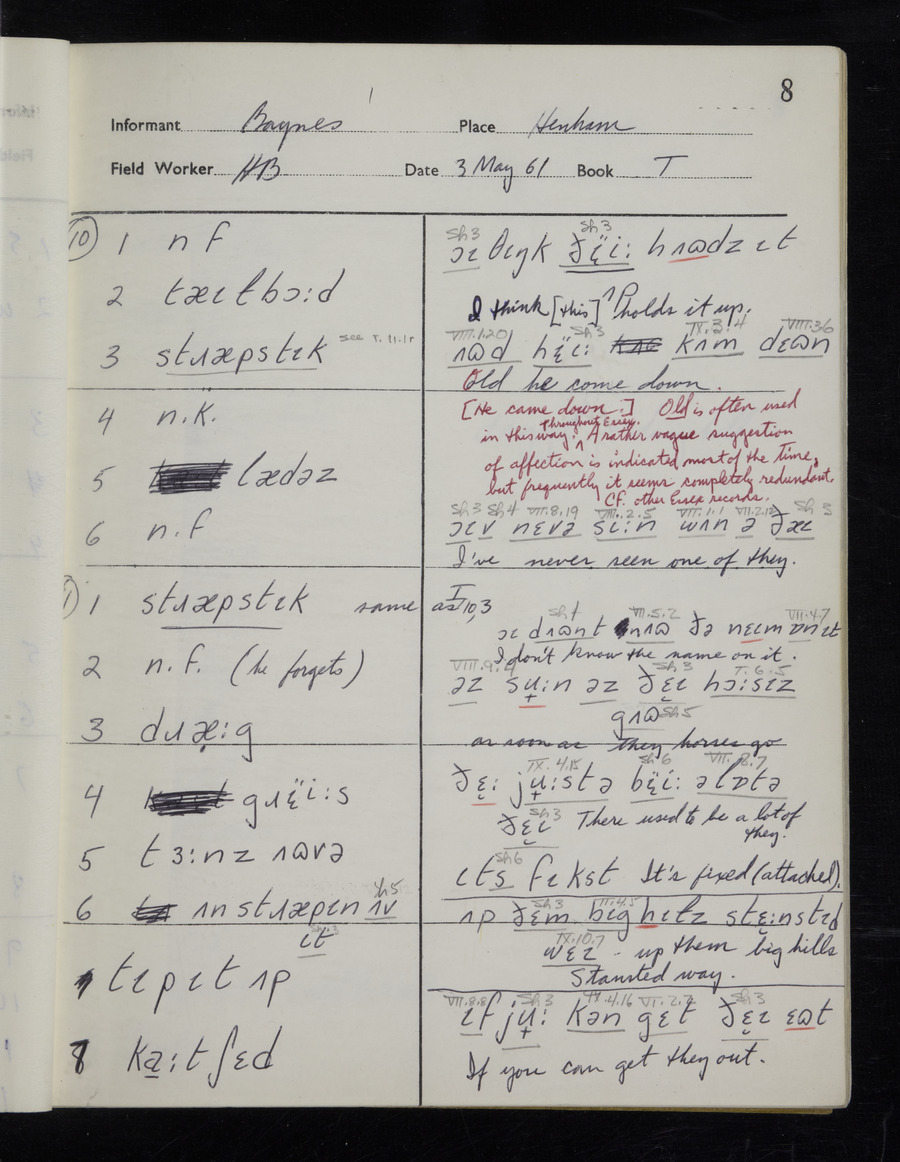 8
Informant Baynes Place Henham
Field Worker HB Date 3 May 61 Book T
10 1 n f
2 tæɪlbɔ:d
3 stɹæpstɪk see T. 11.1r
4 n.k.
5 lædəz
6 n.f
1 stɹæpstɪk same as I 10,3
2 n.f. (he forgets)
3 dɹæ:g
4 gɹɛ̈i:s
5 tɜ:nz ʌɷvə
6 ʌnstɹæpɪn ʌv Sh5
ɪt Sh.3
7 tɪpɪt ʌp
8 ka:tʃɛd
Sh3 Sh3
ɔɪ θɪŋk ðɛ̈i: hʌɷdz ɪt
I think [this] ^? holds it up.
VIII.1.20 Sh3 IX.3.4 VIII.3.6
ʌɷd hɛ̈i: kʌm dɛɷn
Old he come down.
[He came down.] Old is often used
in this way, throughout Essex. A rather vague suggestion
of affection is indicated most of the time,
but frequently it seems completely redundant.
Cf. other Essex records.
Sh3 Sh4 VII.8.19 VIII.2.5 VII.1.1 VII.2. Sh 3
ɔɪv nɛvə si:n wʌn ə ðæɪ
I've never seen one of they.
Sh4 VI.5.2 VII.4.7
ɔɪ dʌɷnt nʌɷ ðə nɛɪm ɒn ɪt
I don't know the name on it.
VIII.9. Sh3 T.6.5
əz sʉ:n əz ðɛɪ hɔ:sɪz
gʌɷ Sh5
as soon as they horses go
IX.4.15 Sh6 VII.8.7
ðɛ: jʉ:stə bɛ̈i: əlɒtə
ðɛɪ Sh3 There used to be a lot of
they.
Sh6
ɪts fɪkst It's fixed (attached).
Sh3 II.4.5
ʌp ðɛm bɪg hɪlz stɛ:nstɪd
IX.10.7
wɛɪ - up them big hills
Stansted way.
VII.8.8 Sh3 IX.4.16 VI.2.2 Sh3
ɪf jʉ: kən gɛt ðɛɪ ɛɷt
If you can get they out.